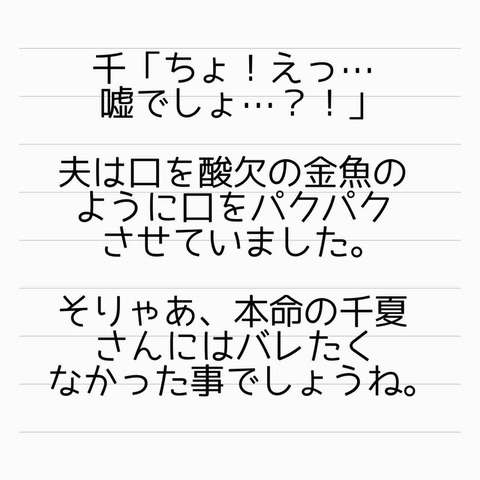 千「ちょ！えっ…
嘘でしょ…？！」
夫は口を酸欠の金魚の
ように口をパクパク
させていました。
そりゃあ、本命の千夏
さんにはバレたく
なかった事でしょうね。